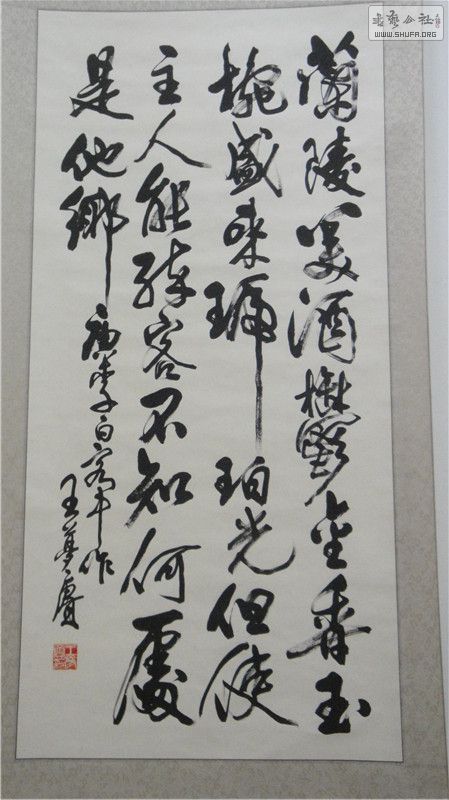 蘭陵美酒鬱金香玉
椀盛來琥珀光但使
主人能醉客不知何處
是他鄉
唐李白客中作
王夢
書藝公社
WWW.SHUFA.ORG